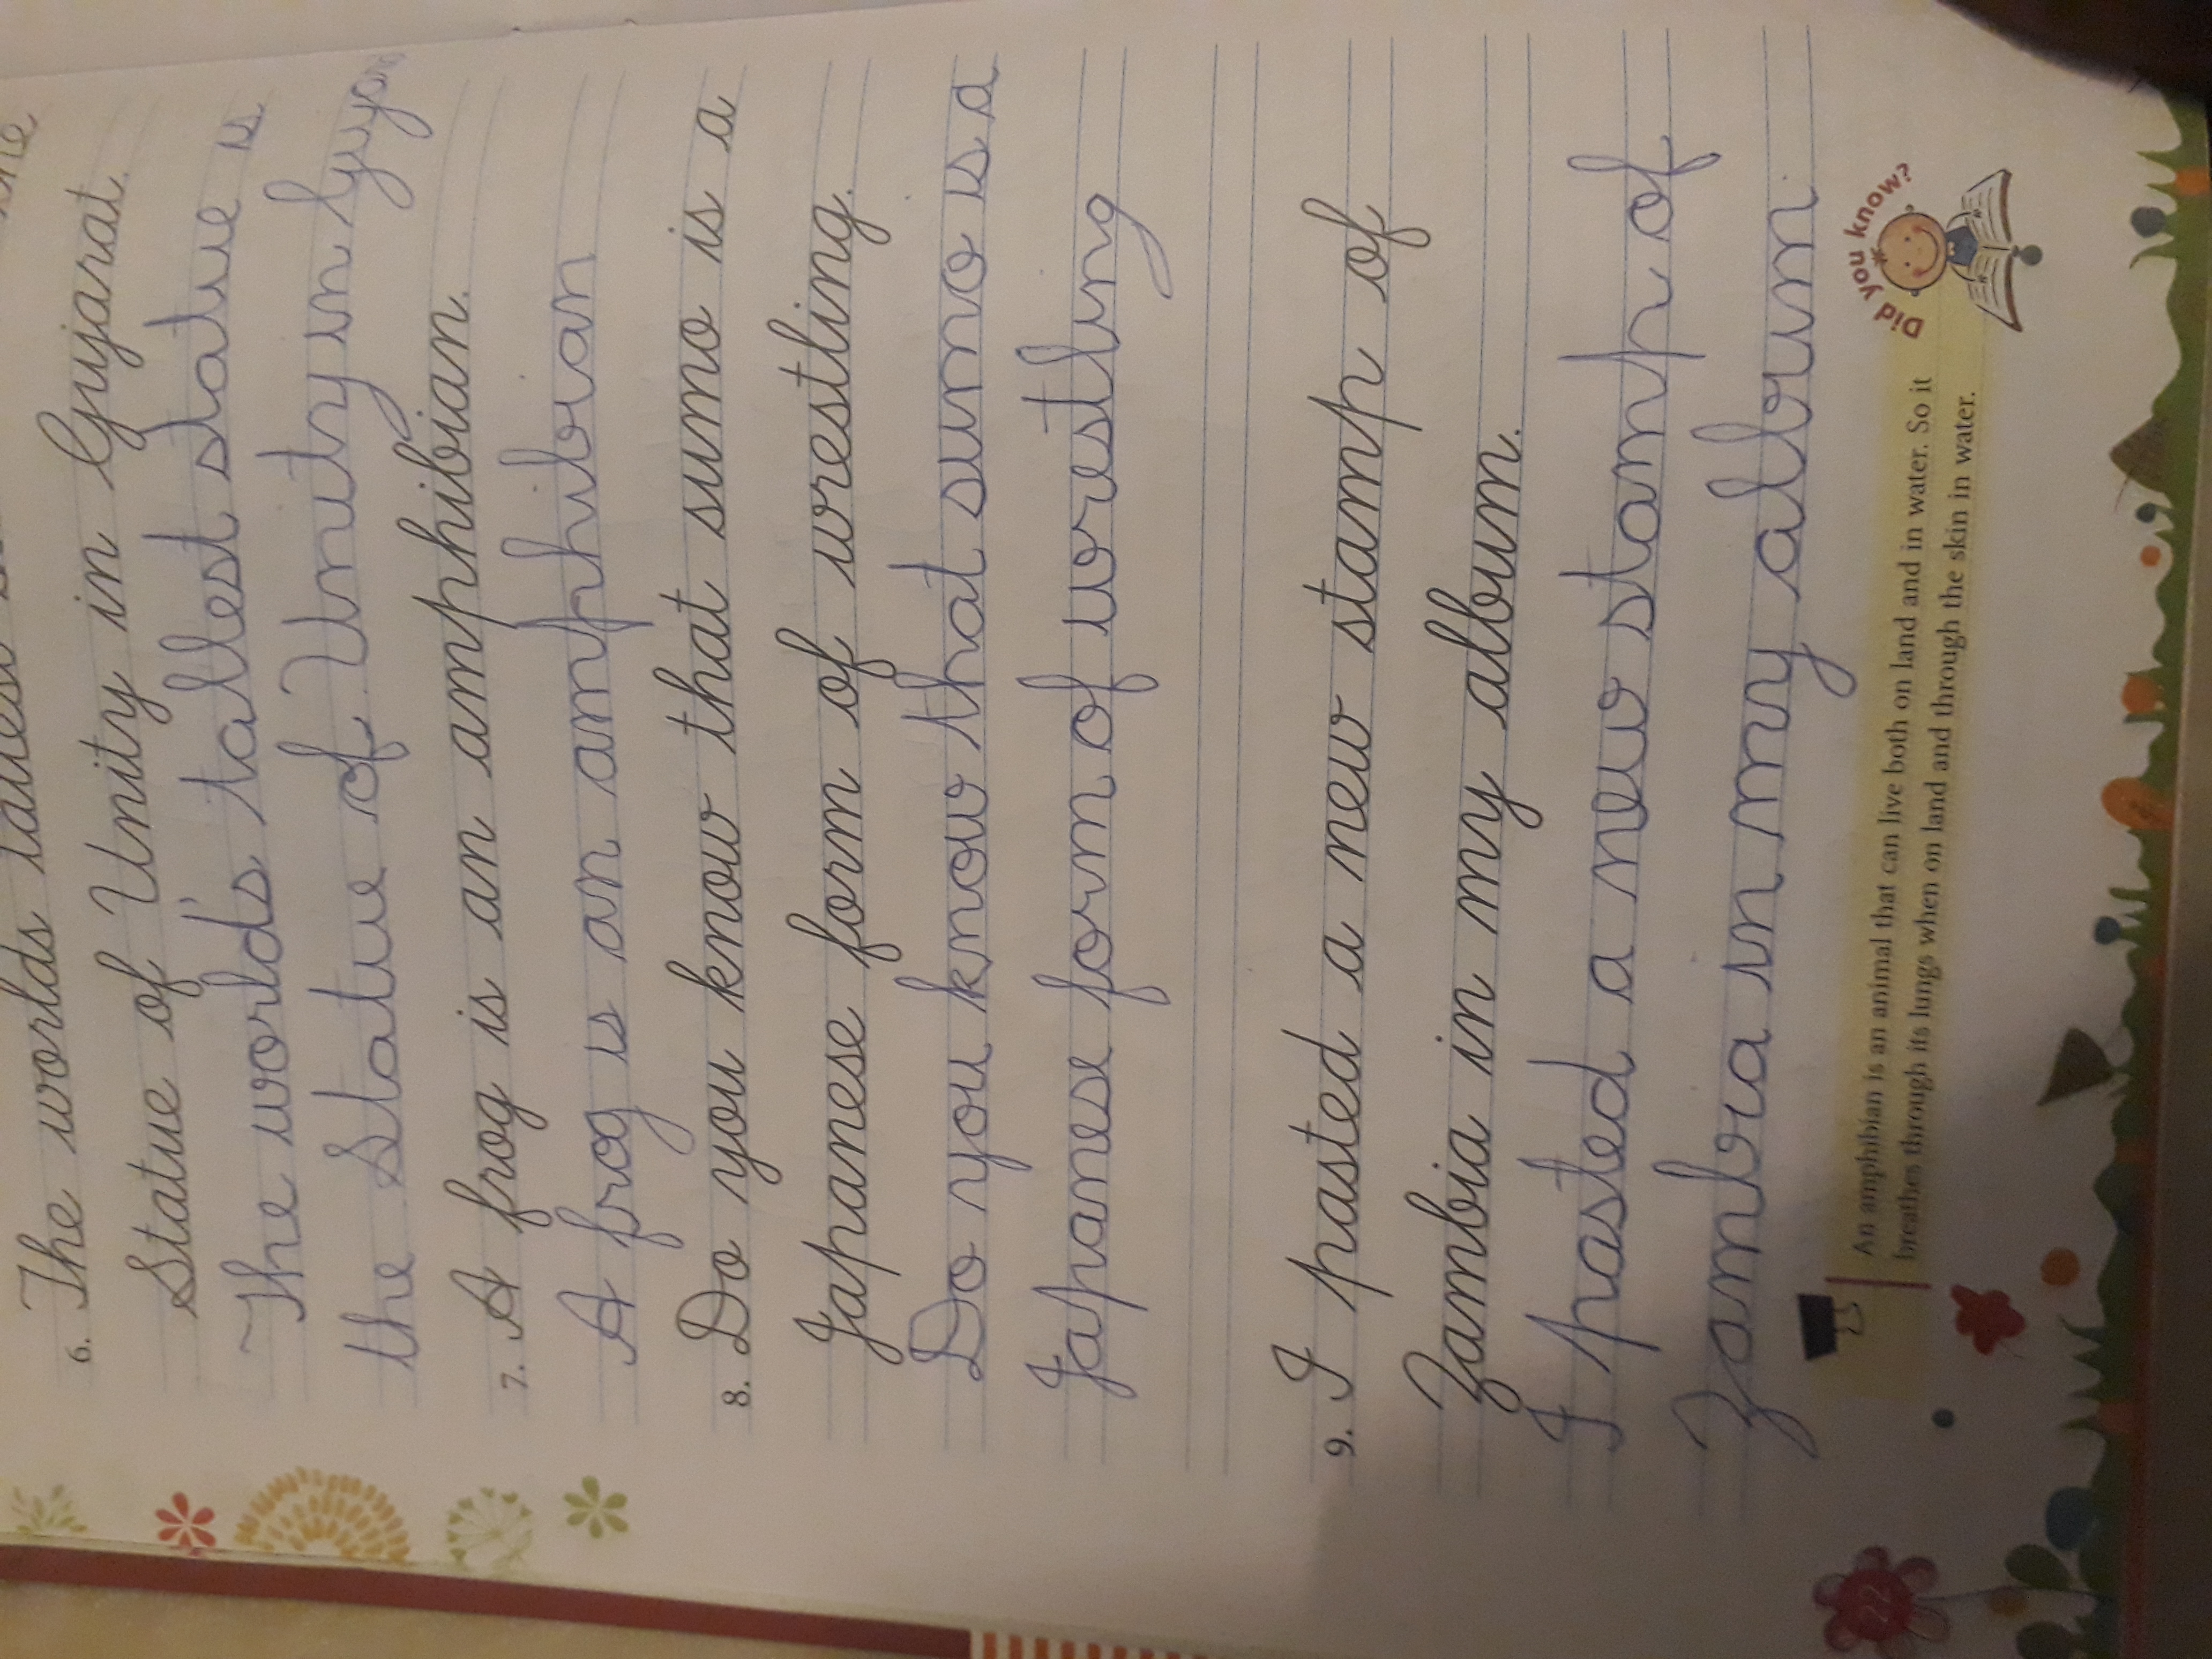 6. The worlds tallest the
Statue of Unity in Gujarat.
The world's tallest statue is
the Statue of Unity in Guja
7. A frog is an amphibian.
A frog is an amphibian
8. Do you know that sumo is a
Japanese form of wrestling.
Do you know that sumo is a
Japanese form of wrestling
9. I pasted a new stamp of
Zambia in my album.
I pasted a new stamp of
Zambia in my album.
Did you know?
An amphibian is an animal that can live both on land and in water. So it
breathes through its lungs when on land and through the skin in water.
22